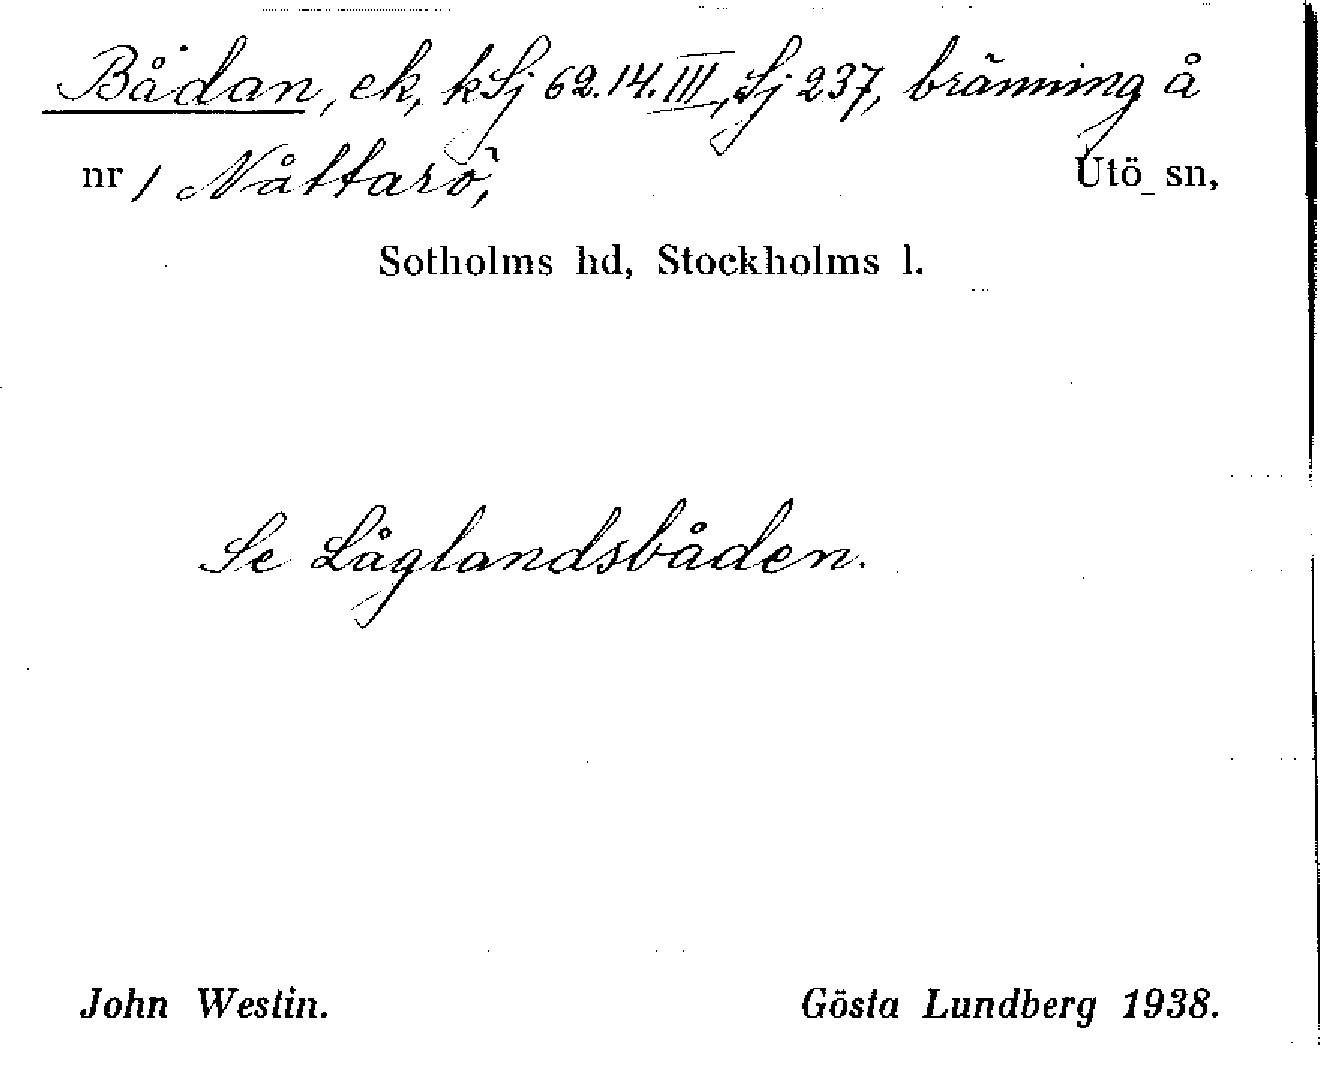 Bådan, ek, kSj 62.14.III, Sj 237, bränning å
nr 1 Nåttarö, Utö sn,
Sotholms hd, Stockholms l.
Se Låglandsbåden.
John Westin. Gösta Lundberg 1938.